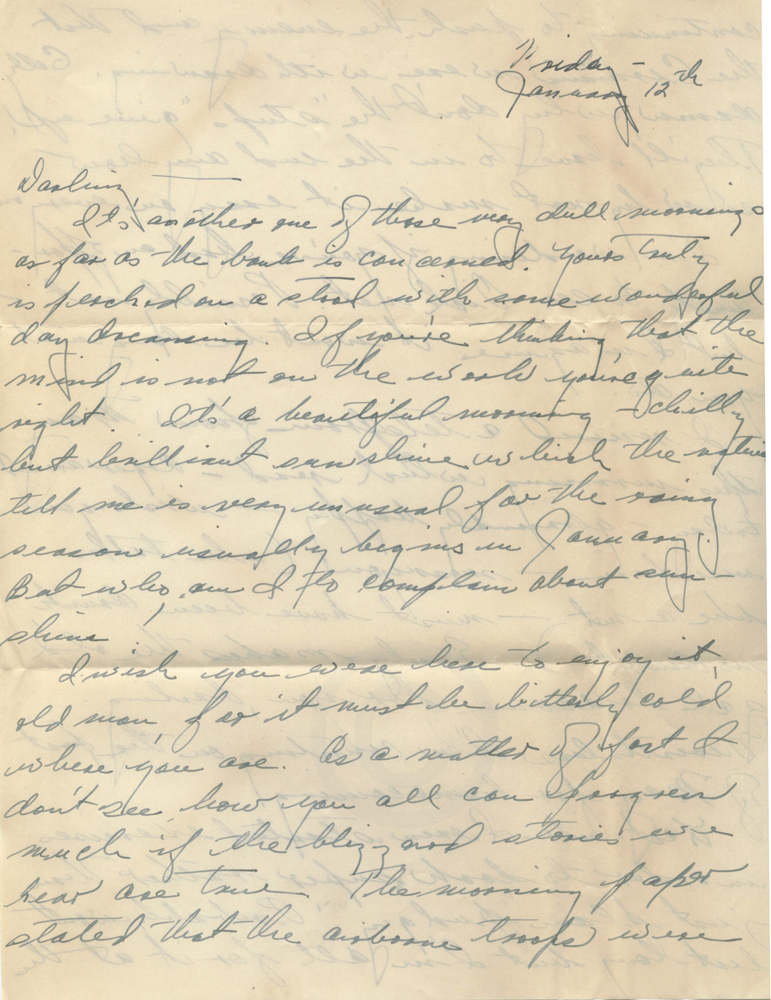 Friday –
January 12th
Darling,
It's another one of those very dull mornings
as far as the bank is concerned. Yours truly
is perched on a stool with some wonderful
day dreaming. If you're thinking that the
mind is not on the work you're quite
right. It's a beautiful morning – chilly
but brilliant sunshine which the natives
tell me is very unusual for the rainy
season usually begins in January.
But who am I to complain about sun-
shine!
I wish you were here to enjoy it,
old man, for it must be bitterly cold
where you are. As a matter of fact I
don't see how you all can progress
much if the blizzard stories we
hear are true. The morning paper
stated that the airborne troops were